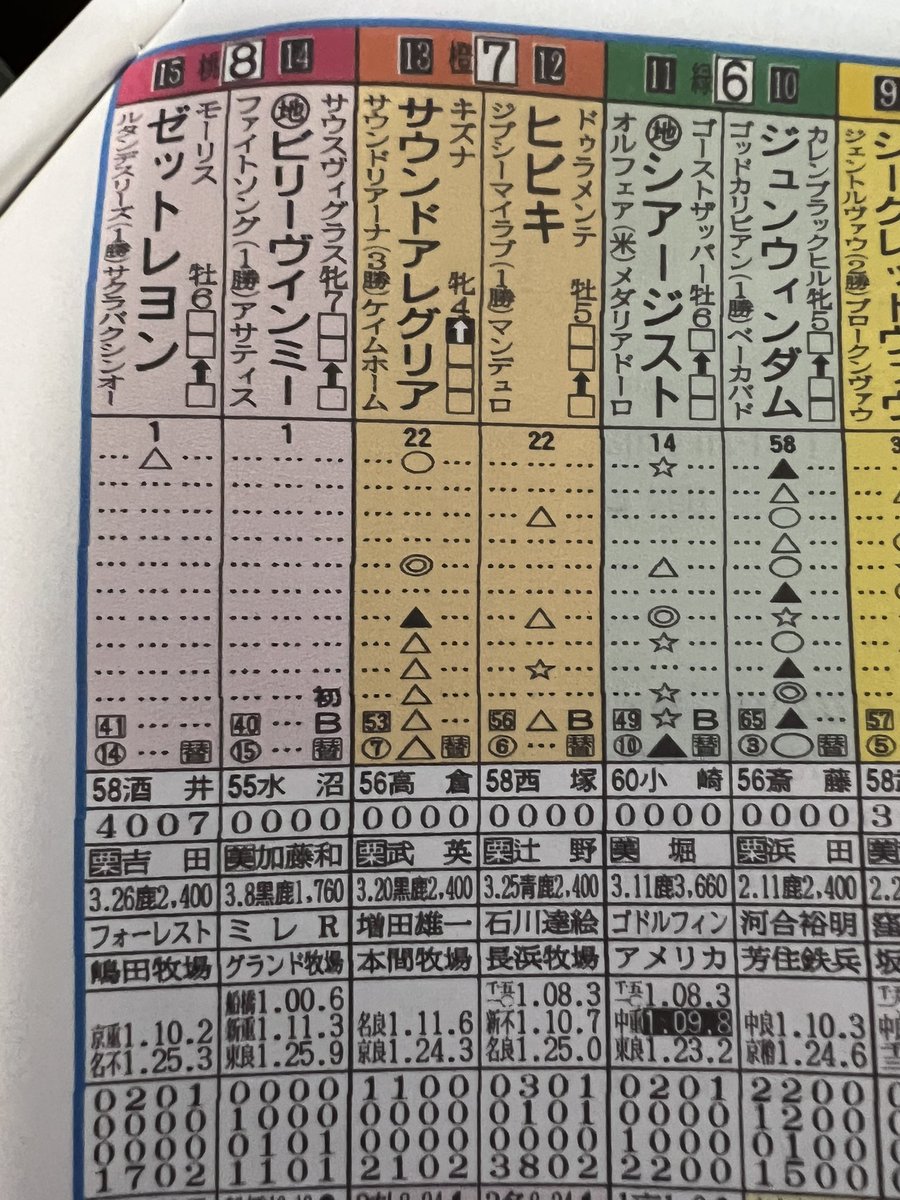 15 桃 8 14
モーリス
ゼットレヨン
牡6
ルタンデスリーズ(1勝)サクラバクシンオー
1
△
41
⑭ 替
58酒井
4007
栗吉田
3.26鹿2,400
フォーレスト
嶋田牧場
京重1.10.2
名不1.25.3
0201
0000
0000
1702
サウスヴィグラス牝7
地ビリーヴインミー
ファイトソング(1勝)アサティス
1
初
40 B
⑮ 替
55水沼
0000
美加藤和
3.8黒鹿1,760
ミレR
グランド牧場
船橋1.00.6
新重1.11.3
東良1.25.9
0000
1000
0101
1101
13 橙 7 12
キズナ
サウンドアレグリア
牝4
サウンドリアーナ(3勝)ケイムホーム
22
○
◎
▲
△
△
△
53 △
⑦ △ 替
56高倉
0000
栗武英
3.20黒鹿2,400
増田雄一
本間牧場
名良1.11.6
京良1.24.3
1100
0000
0000
2102
ドゥラメンテ
ヒビキ
牡5
ジプシーマイラブ(1勝)マンデュロ
22
△
△
☆
56 △ B
⑥ 替
58西塚
0000
栗辻野
3.25青鹿2,400
石川達絵
長浜牧場
1.08.3
新不1.10.7
名良1.25.0
0301
0101
0000
3802
11 緑 6 10
ゴーストザッパー牡6
地シアージスト
オルフェア(米)メダリアドーロ
14
☆
△
◎
☆
☆
49 ☆ B
⑩ ▲ 替
60小崎
0000
美堀
3.11鹿3,660
ゴドルフィン
アメリカ
1.08.3
中重1.09.8
東良1.23.2
0201
0000
1000
2200
カレンブラックヒル牝5
ジュンウィンダム
ゴッドカリビアン(1勝)ベーカバド
58
▲
△
○
△
○
▲
☆
○
▲
◎
65 ▲
③ ○ 替
56斎藤
0000
栗浜田
2.11鹿2,400
河合裕明
芳住鉄兵
中良1.10.3
京稍1.24.6
2200
1200
0100
1500
9
ジェントルヴァウ(2勝)ブロークンヴァウ
57
⑤
58
3